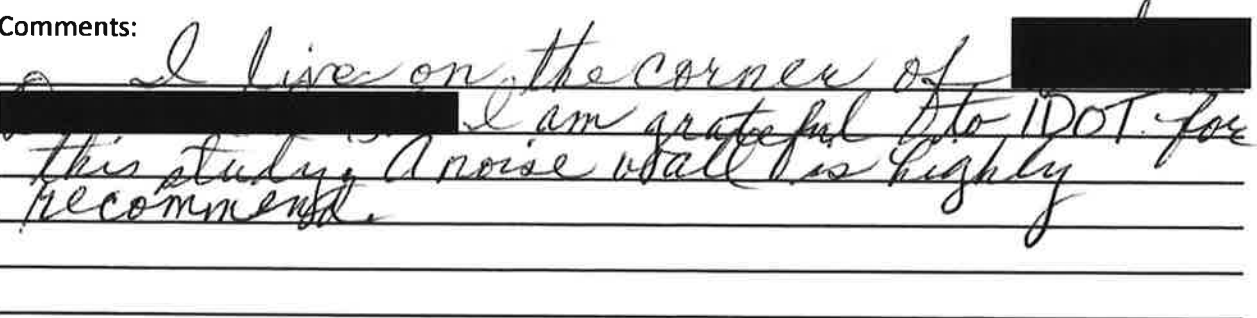 Comments:
I live on the corner of
I am grateful to IDOT for
this study. A noise wall is highly
recommend.